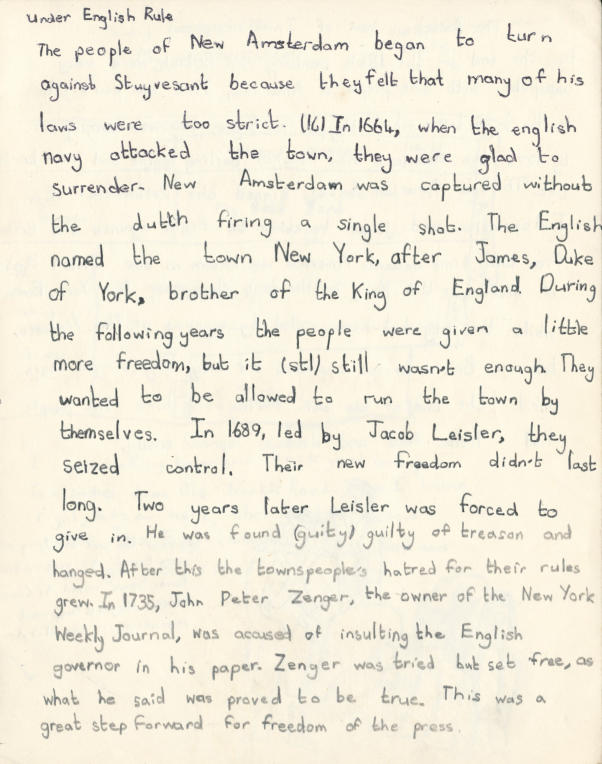 under English Rule
The people of New Amsterdam began to turn
against Stuyvesant because they felt that many of his
laws were too strict. (16) In 1664, when the english
navy attacked the town, they were glad to
surrender. New Amsterdam was captured without
the dutch firing a single shot. The English
named the town New York, after James, Duke
of York, brother of the King of England. During
the following years the people were given a little
more freedom, but it (stl) still wasn't enough. They
wanted to be allowed to run the town by
themselves. In 1689, led by Jacob Leisler, they
seized control. Their new freedom didn't last
long. Two years later Leisler was forced to
give in. He was found (guity) guilty of treason and
hanged. After this the townspeople's hatred for their rules
grew. In 1735, John Peter Zenger, the owner of the New York
Weekly Journal, was accused of insulting the English
governor in his paper. Zenger was tried but set free, as
what he said was proved to be true. This was a
great step forward for freedom of the press.